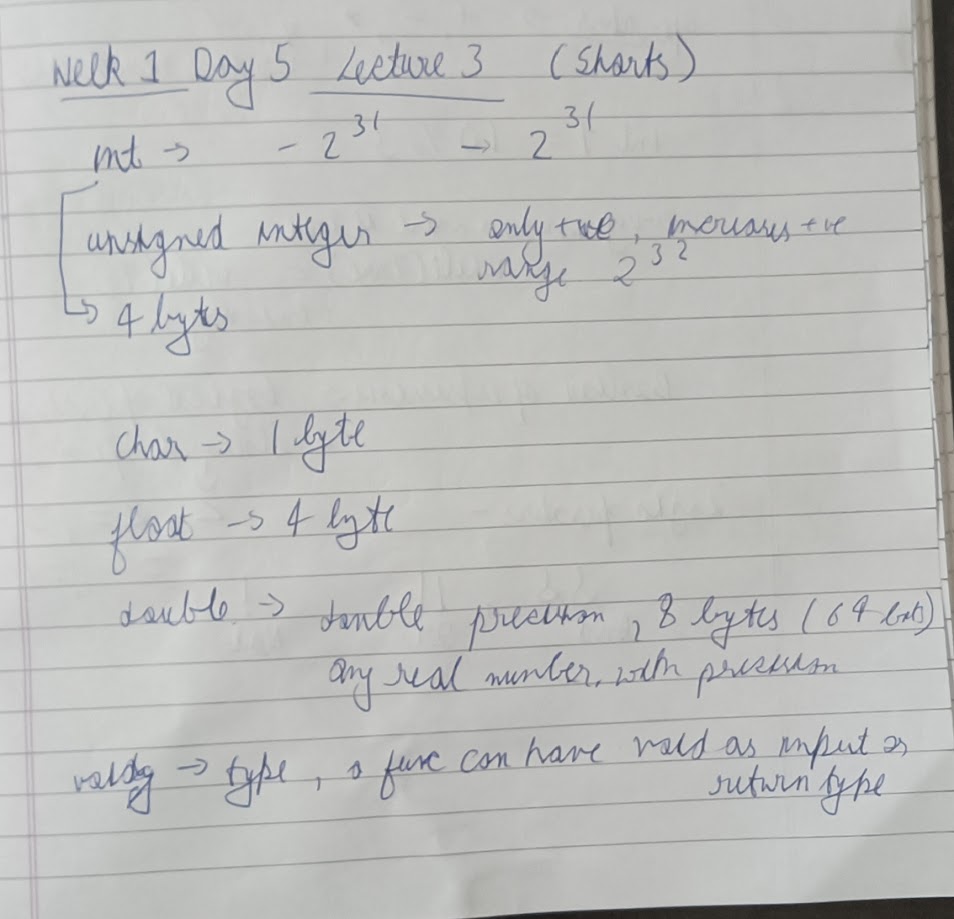 Week 1 Day 5 Lecture 3 (Shorts)
int → - 2^31 → 2^31
unsigned integer → only +ve, increases +ve
range 2^32
↳ 4 bytes
char → 1 byte
float → 4 byte
double → double precision, 8 bytes (64 bits)
any real number, with precision
void → type, a func can have void as input or
return type